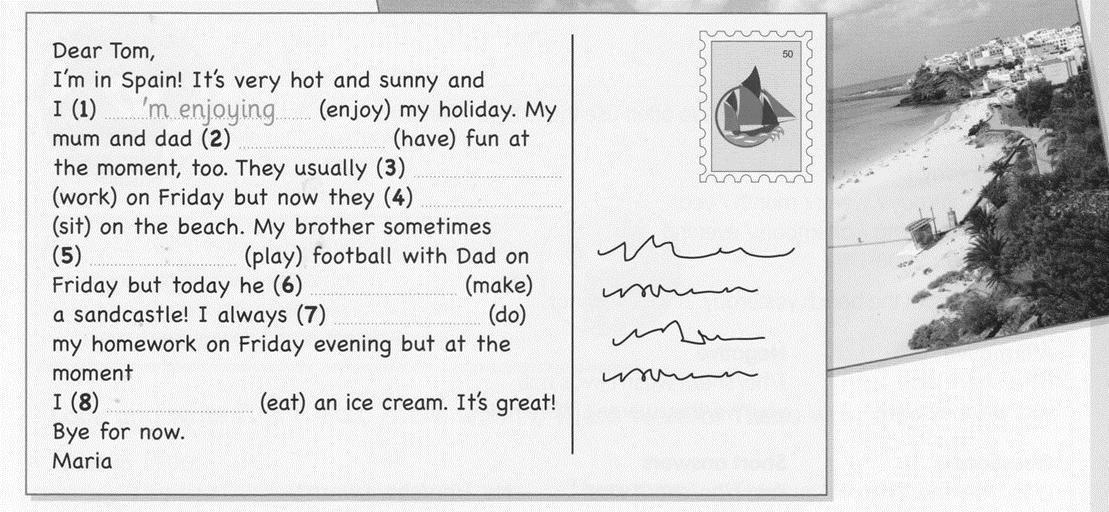 Dear Tom,
I'm in Spain! It's very hot and sunny and
I (1) 'm enjoying (enjoy) my holiday. My
mum and dad (2) (have) fun at
the moment, too. They usually (3)
(work) on Friday but now they (4)
(sit) on the beach. My brother sometimes
(5) (play) football with Dad on
Friday but today he (6) (make)
a sandcastle! I always (7) (do)
my homework on Friday evening but at the
moment
I (8) (eat) an ice cream. It's great!
Bye for now.
Maria
50